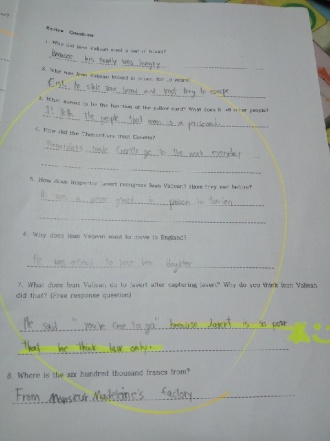 Review Questions
1. Why did Jean Valjean steal a loaf of bread?
Because his family was hungry.
2. Why was Jean Valjean locked in prison for 19 years?
First, he stole some bread and tried to escape
3. What seems to be the function of the yellow card? What does it tell other people?
It tells the people that man is a prisoner
4. How did the Thenardiers treat Cosette?
Thenardiers make Cosette go to the work everyday
5. How does Inspector Javert recognize Jean Valjean? Have they met before?
He was a guard in prison in Toulon
6. Why does Jean Valjean want to move to England?
He was afraid to lose her daughter
7. What does Jean Valjean do to Javert after capturing Javert? Why do you think Jean Valjean
did that? (Free response question)
He said "you're free to go" because Javert is so poor
that he think law only.
8. Where is the six hundred thousand francs from?
From Monsieur Madeleine's factory